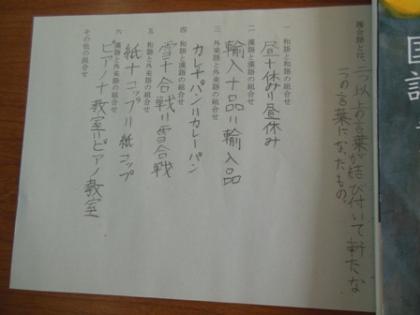 国語
複合語とは、二つ以上の言葉が結び付いて新たな
一つの言葉になったもの。
一 和語と和語の組合せ
昼+休み=昼休み
二 漢語と漢語の組合せ
輸入+品=輸入品
三 外来語と外来語の組合せ
カレー+パン=カレーパン
四 和語と漢語の組合せ
雪+合戦=雪合戦
五 和語と外来語の組合せ
紙+コップ=紙コップ
六 漢語と外来語の組合せ
ピアノ+教室=ピアノ教室
その他の組合せ